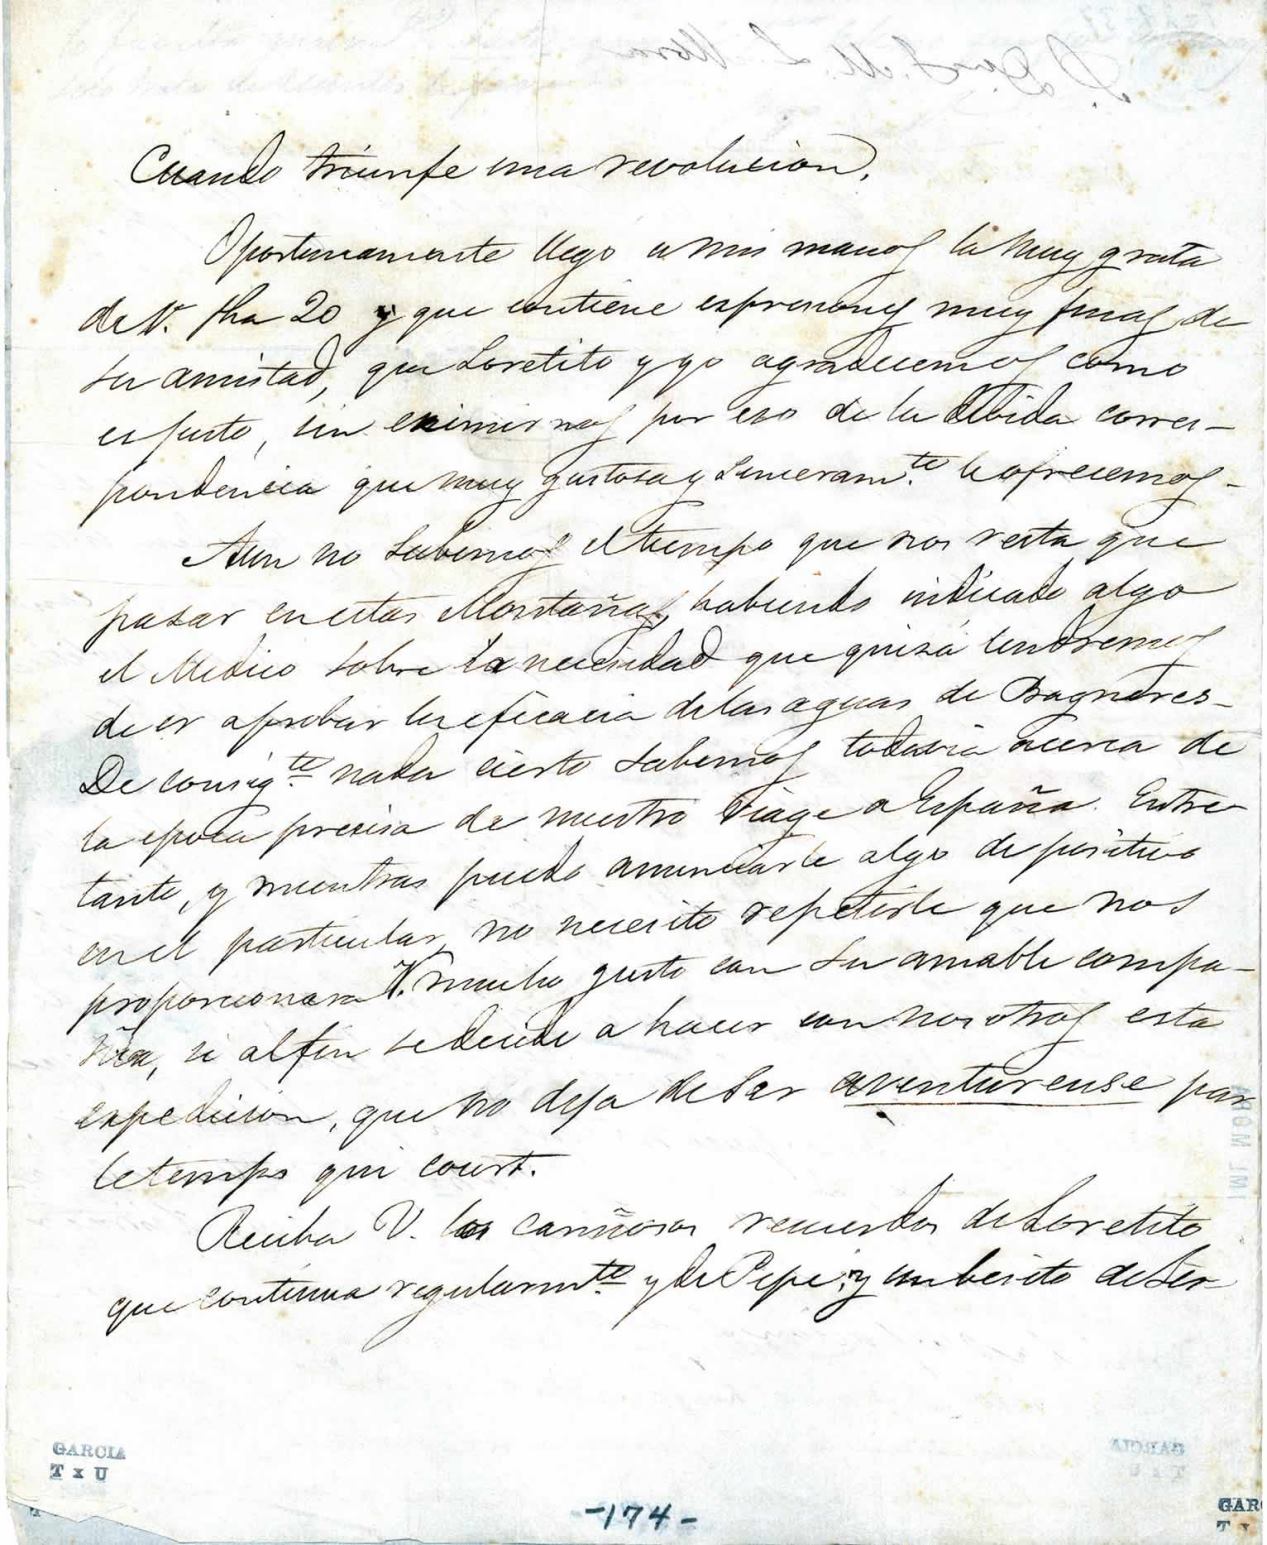 Cuando triunfe una revolucion.
Oportunamente llego a mis manos la muy grata
de V. fha 20 y que contiene espresiones muy finas de
su amistad, que Loretito y yo agradecemos como
es justo, sin eximirnos por eso de la debida corres-
pondencia que muy gustosa y sinceram.te le ofrecemos.
Aun no sabemos el tiempo que nos resta que
pasar en estas Montañas, habiendo indicado algo
el Medico sobre la necesidad que quizá tendremos
de ir aprobar la eficacia de las aguas de Bagneres.
De consig.te nada cierto sabemos todavia acerca de
la epoca precisa de nuestro viage a España. Entre
tanto, y mientras puedo anunciarle algo de positivo
en el particular, no necesito repetirle que nos
proporcionara V. mucho gusto con su amable compa-
ñia, si al fin se decide a hacer con nosotros esta
expedicion, que no deja de ser aventureuse par
le temps qui court.
Reciba V. los cariñosos recuerdos de Loretito
que continua regularm.te y de Pepe; y un besito de Ler-
GARCIA
T x U
-174-
GAR
T x